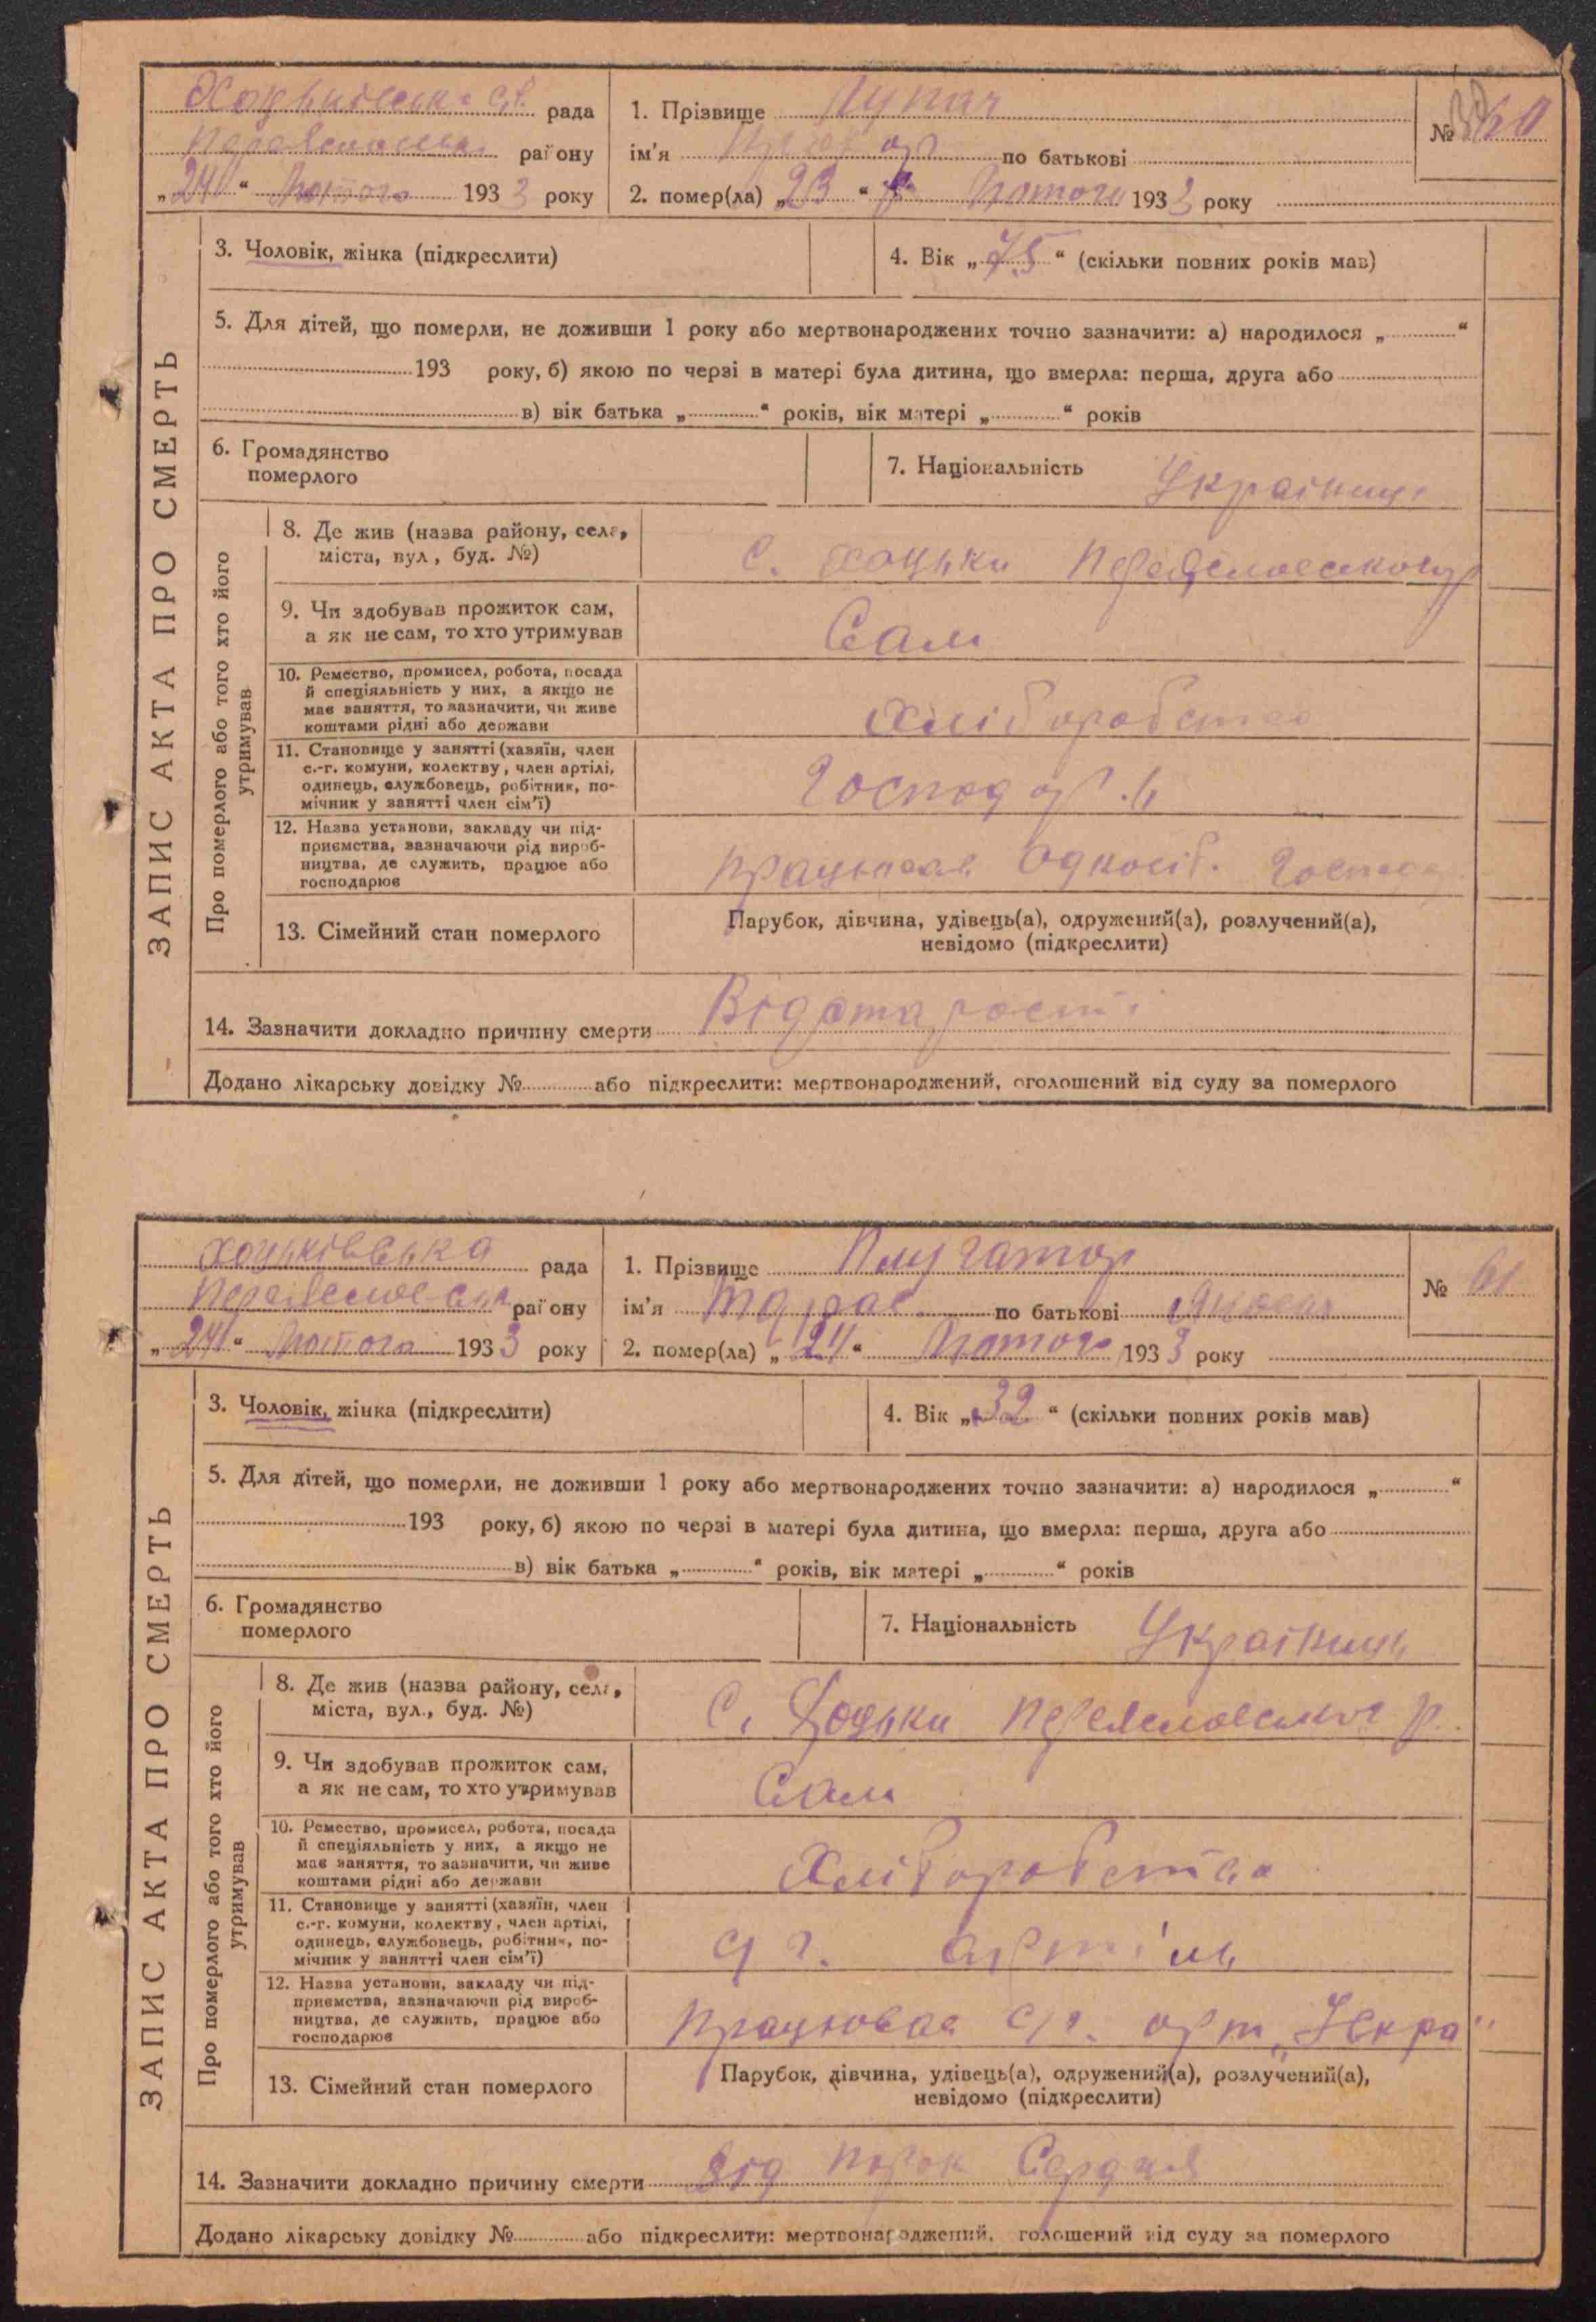 ЗАПИС АКТА ПРО СМЕРТЬ
рада
1. Прізвище
№ 60
району
ім'я по батькові
„24“ Лютого 1933 року
2. помер(ла) „23“ Лютого 1933 року
3. Чоловік, жінка (підкреслити)
4. Вік „75“ (скільки повних років мав)
5. Для дітей, що померли, не доживши 1 року або мертвонароджених точно зазначити: а) народилося „ “
193 року, б) якою по черзі в матері була дитина, що вмерла: перша, друга або
в) вік батька „ “ років, вік матері „ “ років
6. Громадянство
померлого
7. Національність Українець
Про померлого або того хто його
утримував
8. Де жив (назва району, села,
міста, вул., буд. №)
с. Хоцьки
9. Чи здобував прожиток сам,
а як не сам, то хто утримував
Сам
10. Ремество, промисел, робота, посада
й спеціяльність у них, а якщо не
має заняття, то зазначити, чи живе
коштами рідні або держави
Хліборобство
11. Становище у занятті (хазяїн, член
с.-г. комуни, колективу, член артілі,
одинець, службовець, робітник, по-
мічник у занятті член сім'ї)
12. Назва установи, закладу чи під-
приємства, зазначаючи рід вироб-
ництва, де служить, працює або
господарює
Односіб.
13. Сімейний стан померлого
Парубок, дівчина, удівець(а), одружений(а), розлучений(а),
невідомо (підкреслити)
14. Зазначити докладно причину смерти Від старости
Додано лікарську довідку № або підкреслити: мертвонароджений, оголошений від суду за померлого
ЗАПИС АКТА ПРО СМЕРТЬ
Хоцьківська рада
1. Прізвище Плугатор
№ 61
району
ім'я Тарас по батькові
„24“ Лютого 1933 року
2. помер(ла) „24“ Лютого 1933 року
3. Чоловік, жінка (підкреслити)
4. Вік „32“ (скільки повних років мав)
5. Для дітей, що померли, не доживши 1 року або мертвонароджених точно зазначити: а) народилося „ “
193 року, б) якою по черзі в матері була дитина, що вмерла: перша, друга або
в) вік батька „ “ років, вік матері „ “ років
6. Громадянство
померлого
7. Національність Українець
Про померлого або того хто його
утримував
8. Де жив (назва району, села,
міста, вул., буд. №)
с. Хоцьки р.
9. Чи здобував прожиток сам,
а як не сам, то хто утримував
Сам
10. Ремество, промисел, робота, посада
й спеціяльність у них, а якщо не
має заняття, то зазначити, чи живе
коштами рідні або держави
Хліборобство
11. Становище у занятті (хазяїн, член
с.-г. комуни, колективу, член артілі,
одинець, службовець, робітник, по-
мічник у занятті член сім'ї)
12. Назва установи, закладу чи під-
приємства, зазначаючи рід вироб-
ництва, де служить, працює або
господарює
Працював с/г. арт
13. Сімейний стан померлого
Парубок, дівчина, удівець(а), одружений(а), розлучений(а),
невідомо (підкреслити)
14. Зазначити докладно причину смерти Від порок Сердця
Додано лікарську довідку № або підкреслити: мертвонароджений, голошений від суду за померлого